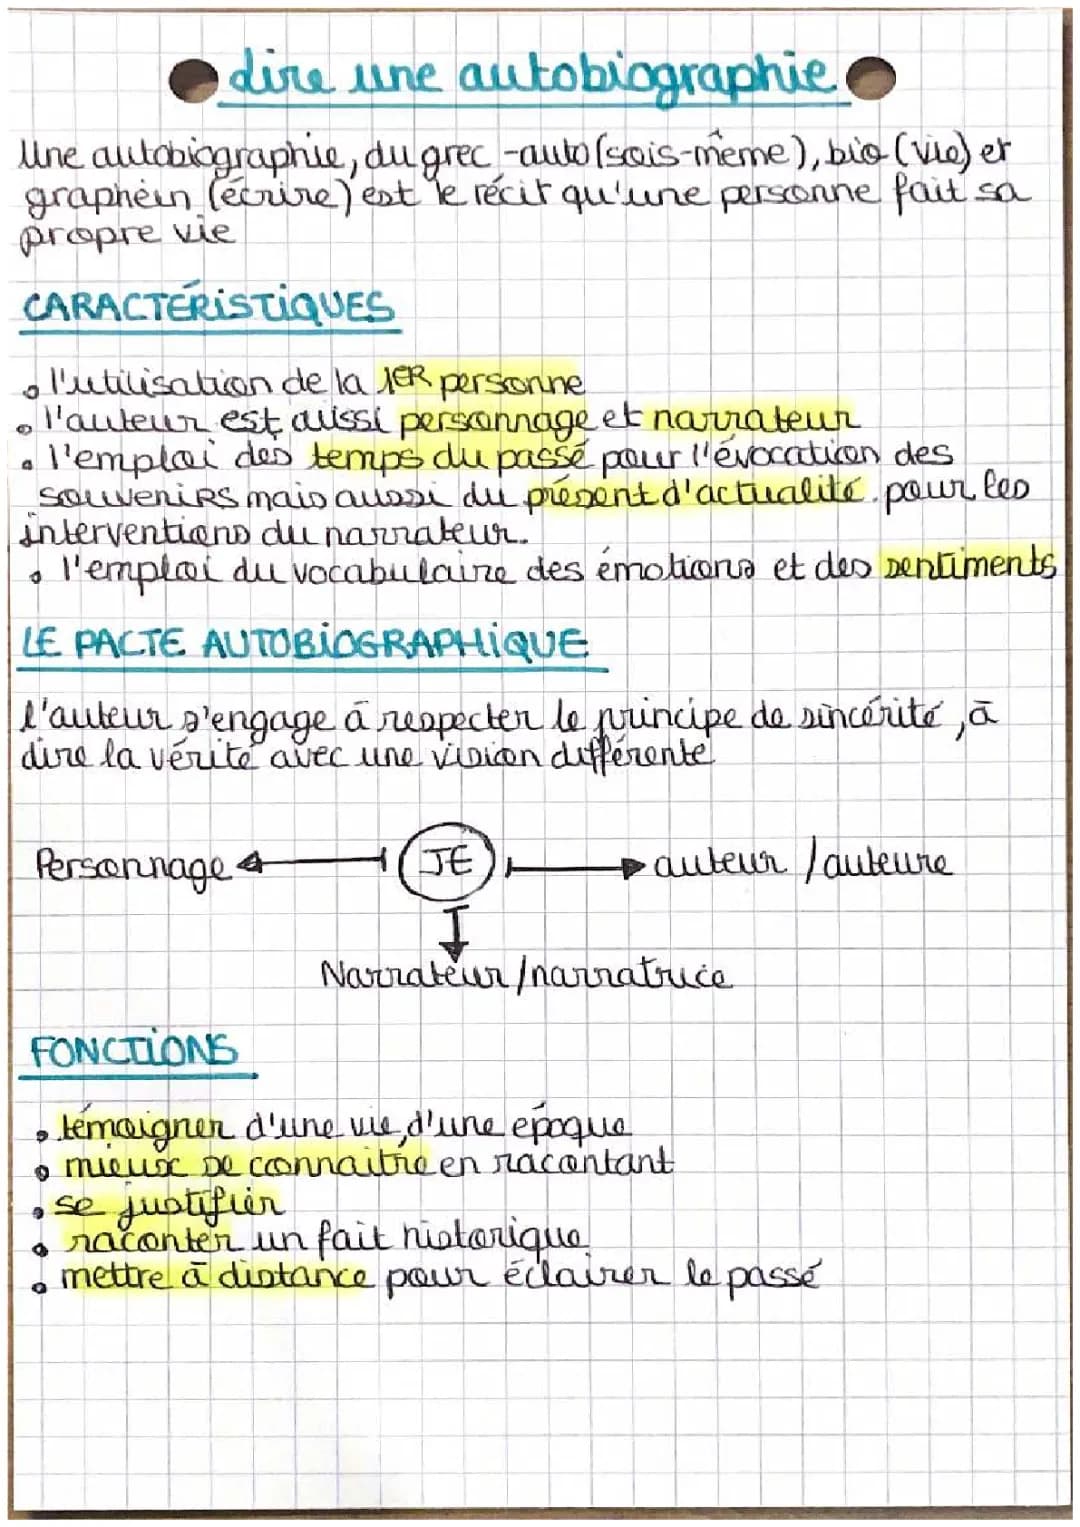 dire une autobiographie
Une autobiographie, du grec -auto (sois-même), bio (vie) et
graphein (écrire) est le récit qu'une personne fait sa
propre vie
CARACTÉRISTIQUES
• l'utilisation de la 1ER personne
• l'auteur est aussi personnage et narrateur
• l'emploi des temps du passé pour l'évocation des
souvenirs mais aussi du présent d'actualité pour les
interventions du narrateur.
• l'emploi du vocabulaire des émotions et des sentiments
LE PACTE AUTOBIOGRAPHIQUE
l'auteur s'engage à respecter le principe de sincérité, à
dire la vérité avec une vision différente
Personnage JE auteur / auteure
Narrateur / narratrice
FONCTIONS
• témoigner d'une vie, d'une époque
• mieux se connaitre en racontant
• se justifier
• raconter un fait historique
• mettre à distance pour éclairer le passé